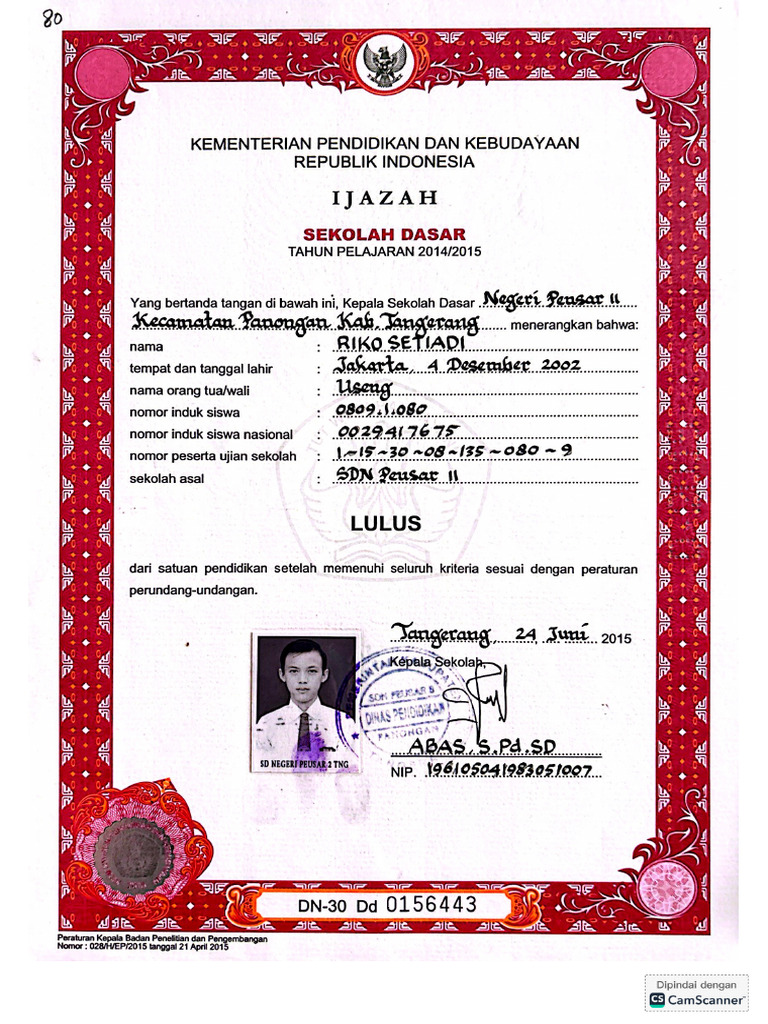 80
KEMENTERIAN PENDIDIKAN DAN KEBUDAYAAN
REPUBLIK INDONESIA
IJAZAH
SEKOLAH DASAR
TAHUN PELAJARAN 2014/2015
Yang bertanda tangan di bawah ini, Kepala Sekolah Dasar Negeri Peusar II
Kecamatan Panongan Kab. Tangerang menerangkan bahwa:
nama : RIKO SETIADI
tempat dan tanggal lahir : Jakarta, 4 Desember 2002
nama orang tua/wali : Useng
nomor induk siswa : 0809.1.080
nomor induk siswa nasional : 0029417675
nomor peserta ujian sekolah : 1-15-30-08-135-080-9
sekolah asal : SDN Peusar II
LULUS
dari satuan pendidikan setelah memenuhi seluruh kriteria sesuai dengan peraturan
perundang-undangan.
Tangerang, 24 Juni 2015
Kepala Sekolah,
SDN PEUSAR II
DINAS PENDIDIKAN
PANONGAN
ABAS, S.Pd.SD
NIP. 196105041983051007
SD NEGERI PEUSAR 2 TNG
DN-30 Dd 0156443
Peraturan Kepala Badan Penelitian dan Pengembangan
Nomor : 028/H/EP/2015 tanggal 21 April 2015
Dipindai dengan
CS CamScanner